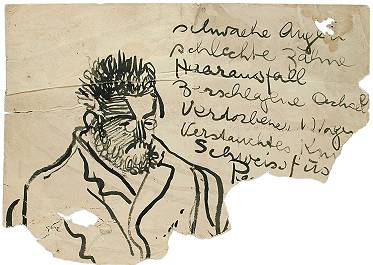 schwache Augen
schlechte Zähne
Haarausfall
Zerschlagene
Verdorbener Mage
Verstauchtes Kni
Schweissfüs